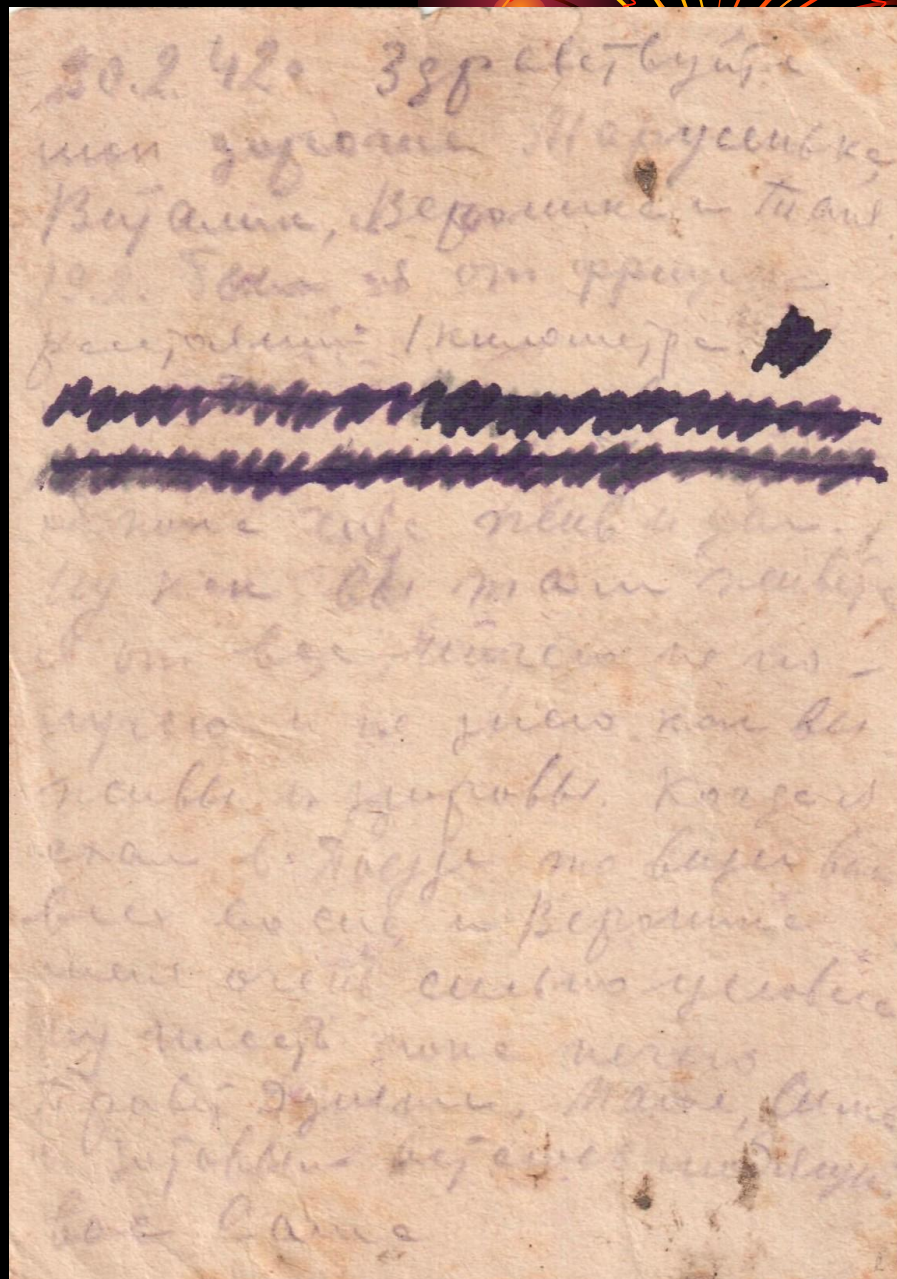 20.2.42г Здравствуйте
мои дорогие Марусинька,
Виталик, Вероника и Таня.
19.2. от фронта
расстоянии 1 километра.
пока еще жив и цел.
ну как вы там живете
я от вас ничего не по-
лучаю и не знаю как вы
живы и здоровы. Когда я
ехал в поезде то видел вас
всех во сне, и Вероника
меня очень сильно целовала
ну писать пока нечего
Привет Дусе, Симе
с этим остаюсь любящий
вас Саша